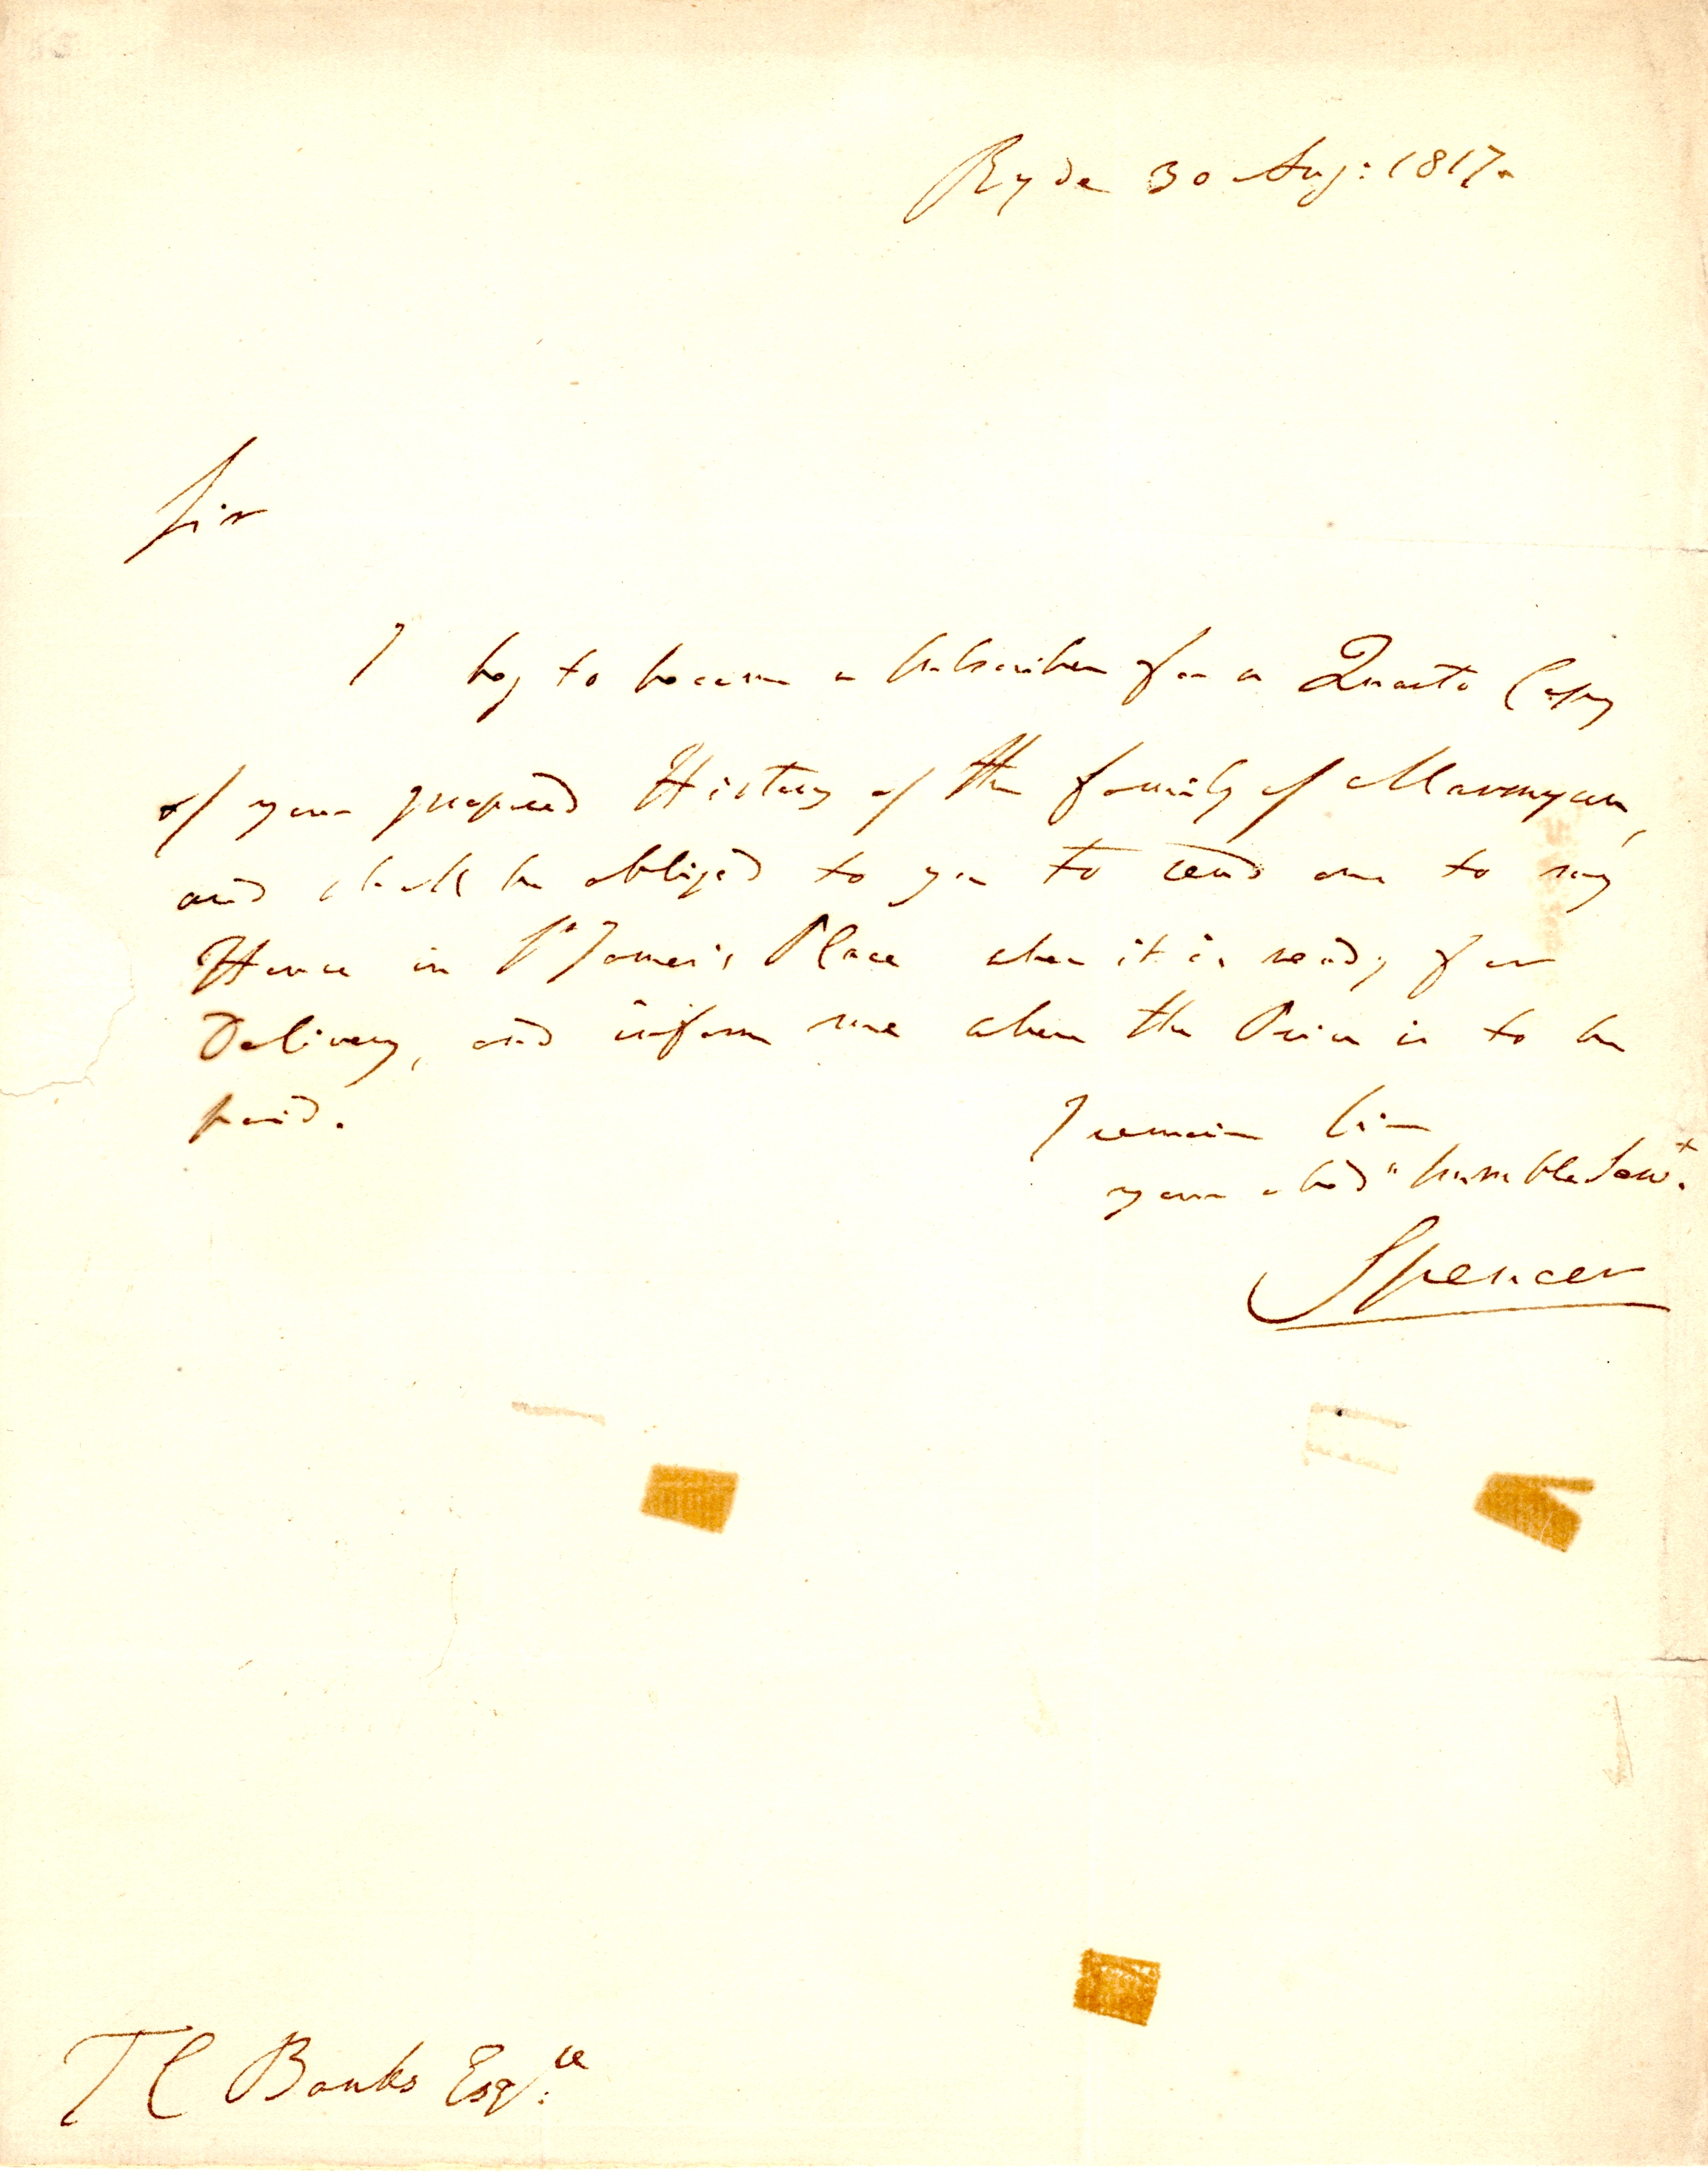 Ryde 30 Aug: 1817.
Sir
I beg to become a Subscriber for a Quarto Copy
of your proposed History of the family of Marmyun,
and shall be obliged to you to send one to my
House in St James's Place when it is ready for
Delivery, and inform me where the Price is to be
paid.
I remain Sir
your obedt humble Servt.
Spencer
T C Banks Esqre